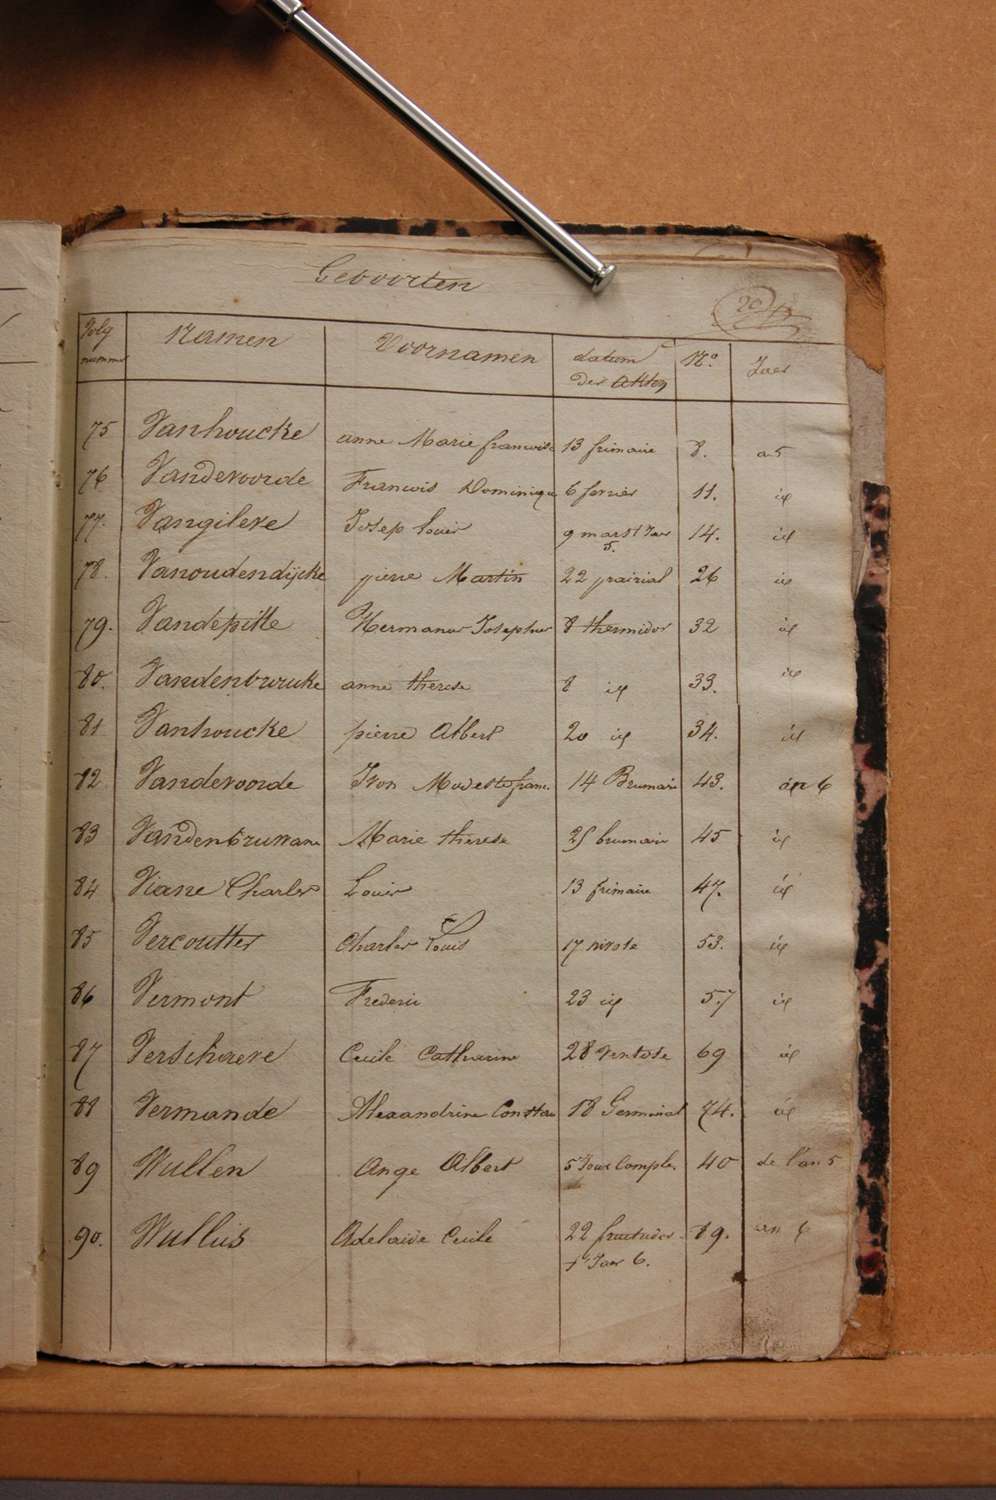 Gevoorten
Volg nummer Namen Voornamen datum der Akten N.o Jaer
75 Vanhoucke anne Marie francoise 13 frimaire 8. a 5
76 Vandevoorde Francois Dominique 6 fevrier 11. id
77. Vangileve Josep louis 9 mars 1 Jaer 5. 14. id
78. Vanoudendijcke pierre Martin 22 prairial 26 id
79. Vandepitte Hermanus Josephus 8 thermidor 32 id
80. anne therese 8 id 33. id
81 Vanhoucke pierre Albert 20 id 34. id
82 Vandevoorde Ivon Modeste franc. 14 Brumair 43. an 6
83 Marie therese 25 brumair 45 id
84 Viane Charles Louis 13 frimaire 47. id
85 Vercoutter Charles Louis 17 nivose 53. id
86 Vermont Frederic 23 id 57 id
87 Verscheure Cecile Catharine 28 ventose 69 id
88 Vermande Alexandrine Constan 18 Germinal 74. id
89 Wullen Ange Albert 5 Jour Comple. 40 de l'an 5
90. Wullus Adelaide Cecile 22 fructidor 89. an 6
t' Jaer 6.